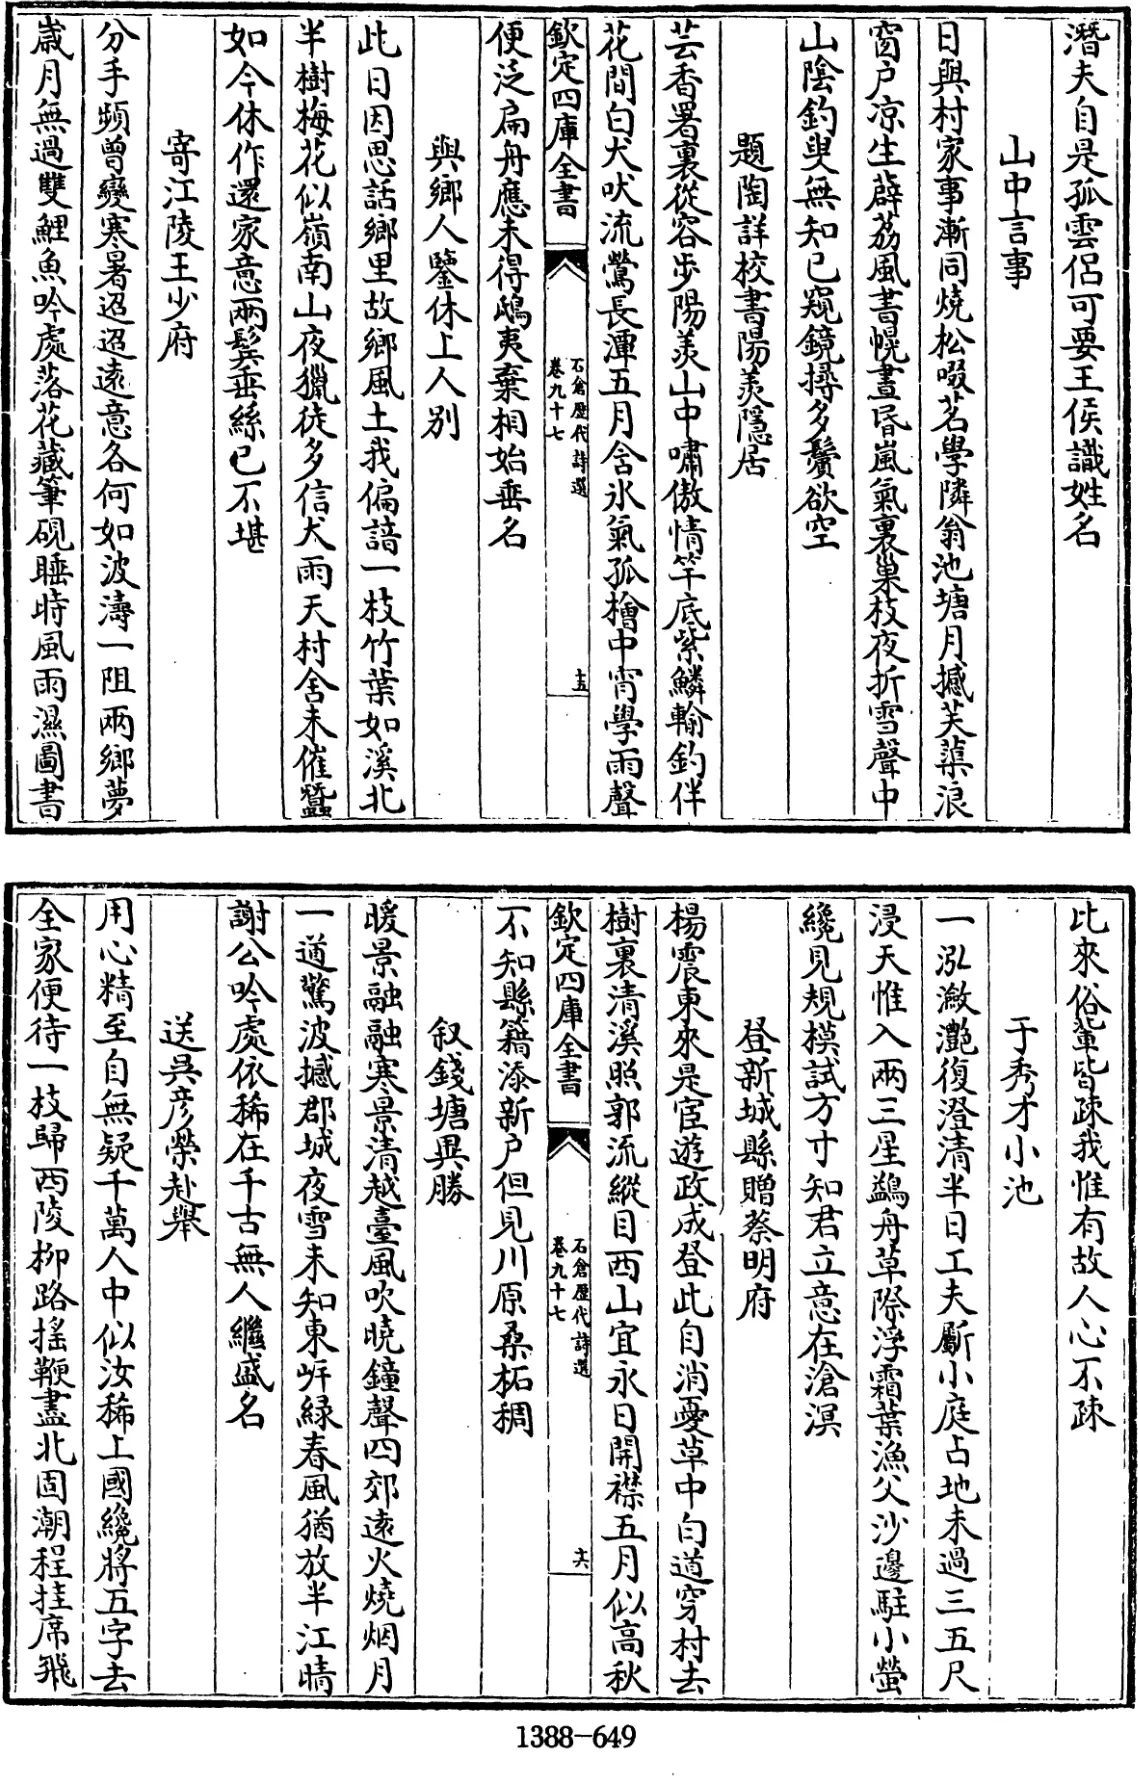 潛夫自是孤雲侶可要王侯識姓名
山中言事
日與村家事漸同燒松啜茗學隣翁池塘月撼芙蕖浪
窗户凉生薜荔風書幌晝昏嵐氣裏巢枝夜折雪聲中
山陰釣叟無知已窺鏡撏多鬢欲空
題陶詳校書陽羡隱居
芸香署裏從容步陽羡山中嘯傲情竿底紫鱗輸釣伴
花間白犬吠流鶯長潭五月含氷氣孤檜中宵學雨聲
欽定四庫全書
石倉歷代詩選
卷九十七
十五
便泛扁舟應未得鴟夷棄相始垂名
與鄉人鑒休上人别
此日因思話鄉里故鄉風土我偏諳一枝竹葉如溪北
半樹梅花似嶺南山夜獵徒多信犬雨天村舍未催蠶
如今休作還家意兩髩垂絲已不堪
寄江陵王少府
分手頻曾變寒暑迢迢遠意各何如波濤一阻兩鄉夢
歲月無過雙鯉魚吟處落花藏筆硯睡時風雨濕圖書
比來俗輩皆疎我惟有故人心不疎
于秀才小池
一泓瀲灔復澄清半日工夫斸小庭占地未過三五尺
浸天惟入兩三星鷁舟草際浮霜葉漁父沙邊駐小螢
纔見規模試方寸知君立意在滄溟
登新城縣贈蔡明府
楊震東來是宦遊政成登此自消憂草中白道穿村去
樹裏清溪照郭流縱目西山宜永日開襟五月似高秋
欽定四庫全書
石倉歷代詩選
卷九十七
十六
不知縣籍添新户但見川原桑柘稠
叙錢塘異勝
暖景融融寒景清越臺風吹曉鐘聲四郊遠火燒烟月
一道驚波撼郡城夜雪未知東岍緑春風猶放半江晴
謝公吟處依稀在千古無人繼盛名
送吳彦榮赴舉
用心精至自無疑千萬人中似汝稀上國纔將五字去
全家便待一枝歸西陵柳路搖鞭盡北固潮程挂席飛
1388-649